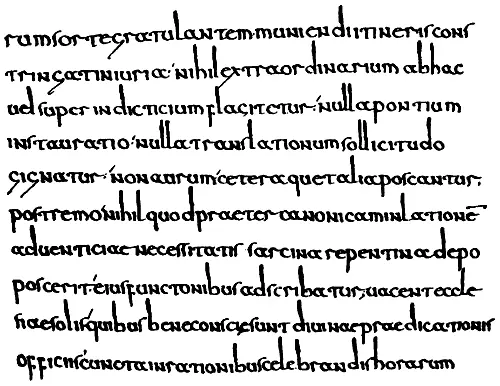 rumsortegratulantem·muniendiitineriscons
tringatiniuria:·nihilextraordinariumabhac
uelsuperindicticiumflagitetur:·nullapontium
instauratio·nullatranslationumsollicitudo
gignatur·nonaurumceteraquetaliaposcantur;
postremonihilquodpraetercanonicaminlationē
aduenticiaenecessitatissarcinarepentinadepo
posceriteiusfunctonibusadscribatur;uacenteccle
siaesolisquibusbeneconsciesuntdiuinaepraedicationis
officiiscunctainrationibuscelebrandishorarum